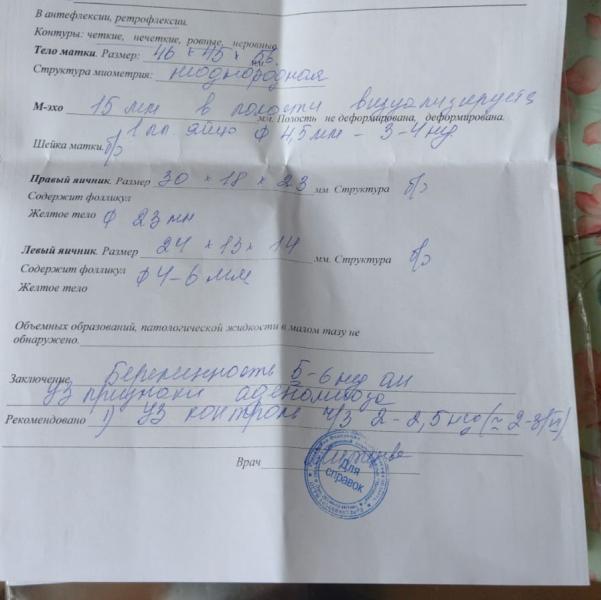 В антефлексии, ретрофлексии.
Контуры: четкие, нечеткие, ровные, неровные.
Тело матки. Размер: 46 х 45 х 56 мм.
Структура миометрия: неоднородная
М-эхо 15 мм в полости визуализируется мм. Полость не деформирована, деформирована.
1 пл. яйцо ф 4,5 мм - 3-4 нед.
Шейка матки. б/о
Правый яичник. Размер 30 х 18 х 23 мм. Структура б/о
Содержит фолликул
Желтое тело ф 23 мм
Левый яичник. Размер 24 х 13 х 14 мм. Структура б/о
Содержит фолликул ф 4-6 мм
Желтое тело
Объемных образований, патологической жидкости в малом тазу не
обнаружено.
Заключение Беременность 5-6 нед
УЗ признаки аденомиоза
Рекомендовано 1) УЗ контроль ч/з 2-2,5 нед
Врач
Для
справок